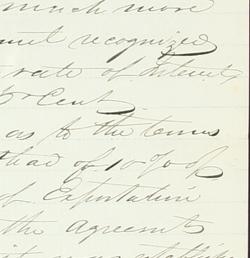 much more
not recognized
rate of Interest
pr Cent
as to the terms
that of 10 % of
of Exportation
the Agreemts